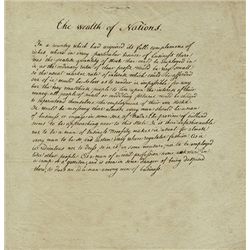 The Wealth of Nations.
In a country which had acquired its full complement of
riches where in every particular branch of business there
was the greatest quantity of Stock that could be employed in
it as the ordinary rate of
the usual market rate of interest which could be afforded
out of it would be so low as to render it impossible for any
but the very wealthiest people to live upon the interest of their
money all people of small or middling fortunes would be obliged
to superintend themselves the employment of their own stocks
It would be necessary that almost every man should be a man
of business or engage in some sort of trade. The province of Holland
seems to be approaching near to this state. It is there unfashionable
not to be a man of business Necessity makes it usual for almost
every man to be so and Custom every where regulates fashion. As it
is ridiculous not to dress, so is it, in some measure, not to be employed
like other people. As a man of a civil profession seems awkward in
a camp or a garrison, and is even in some danger of being despised
there, so does an idle man among men of business.